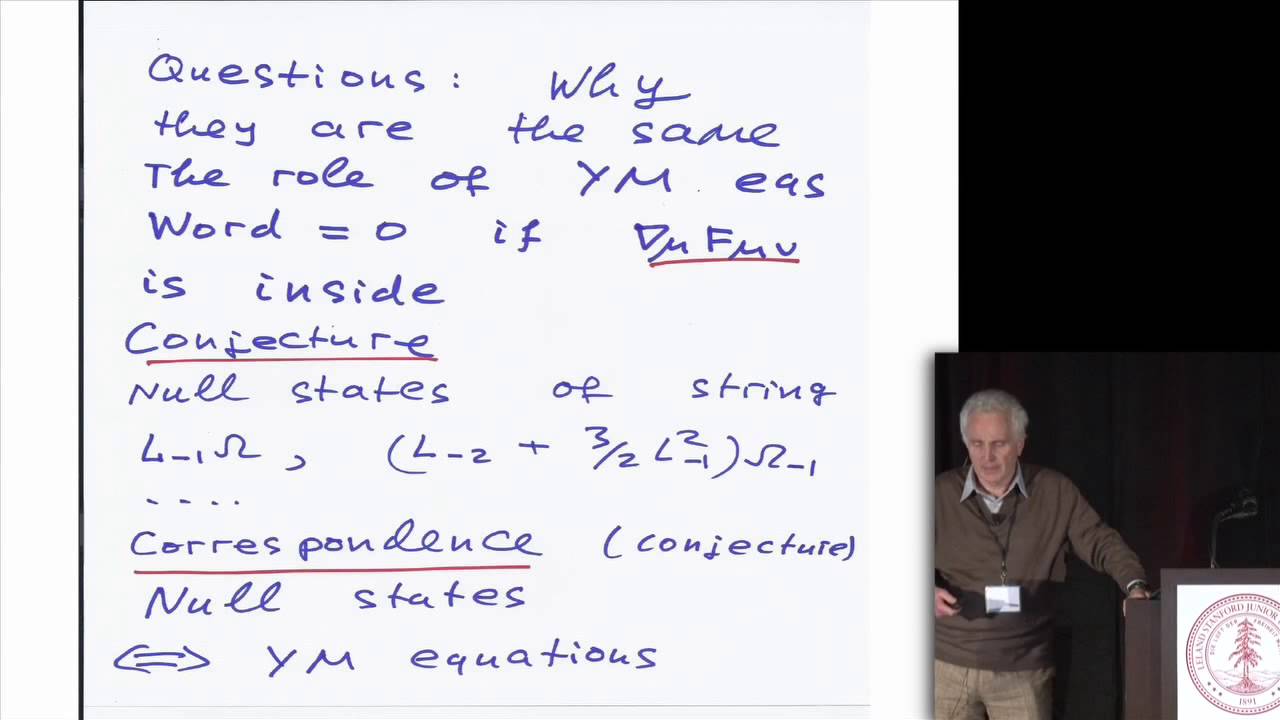 Questions: Why
they are the same
The role of YM eqs
Word = 0 if ∇μ Fμν
is inside
Conjecture
Null states of string
L₋₁Ω, (L₋₂ + 3/2 L²₋₁)Ω₋₁
....
Correspondence (conjecture)
Null states
⟺ YM equations
LELAND STANFORD JUNIOR
DIE LUFT DER FREIHEIT
1891